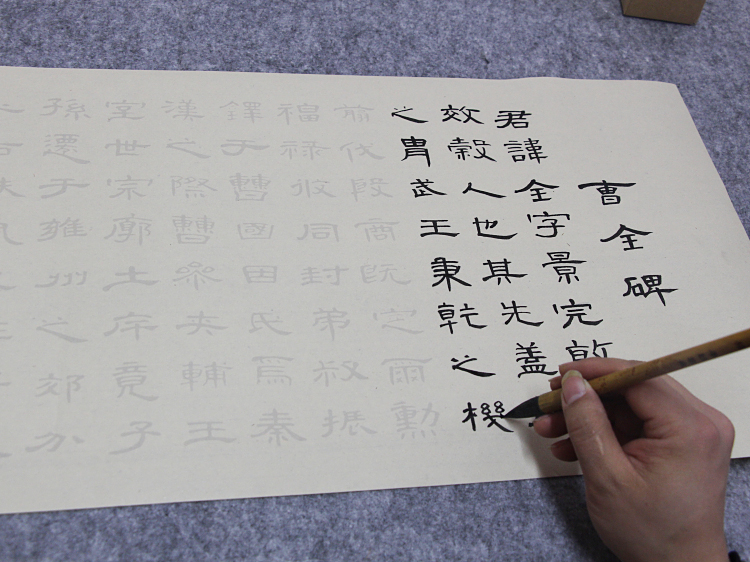 曹全碑
君諱全字景完敦
效穀人也其先蓋
之胄武王秉乾之機
翦伐殷商既定爾勳
福祿攸同封弟叔振
鐸于曹國因氏焉秦
漢之際曹參夾輔王
室世宗廓土斥竟子
孫遷于雍州之郊分